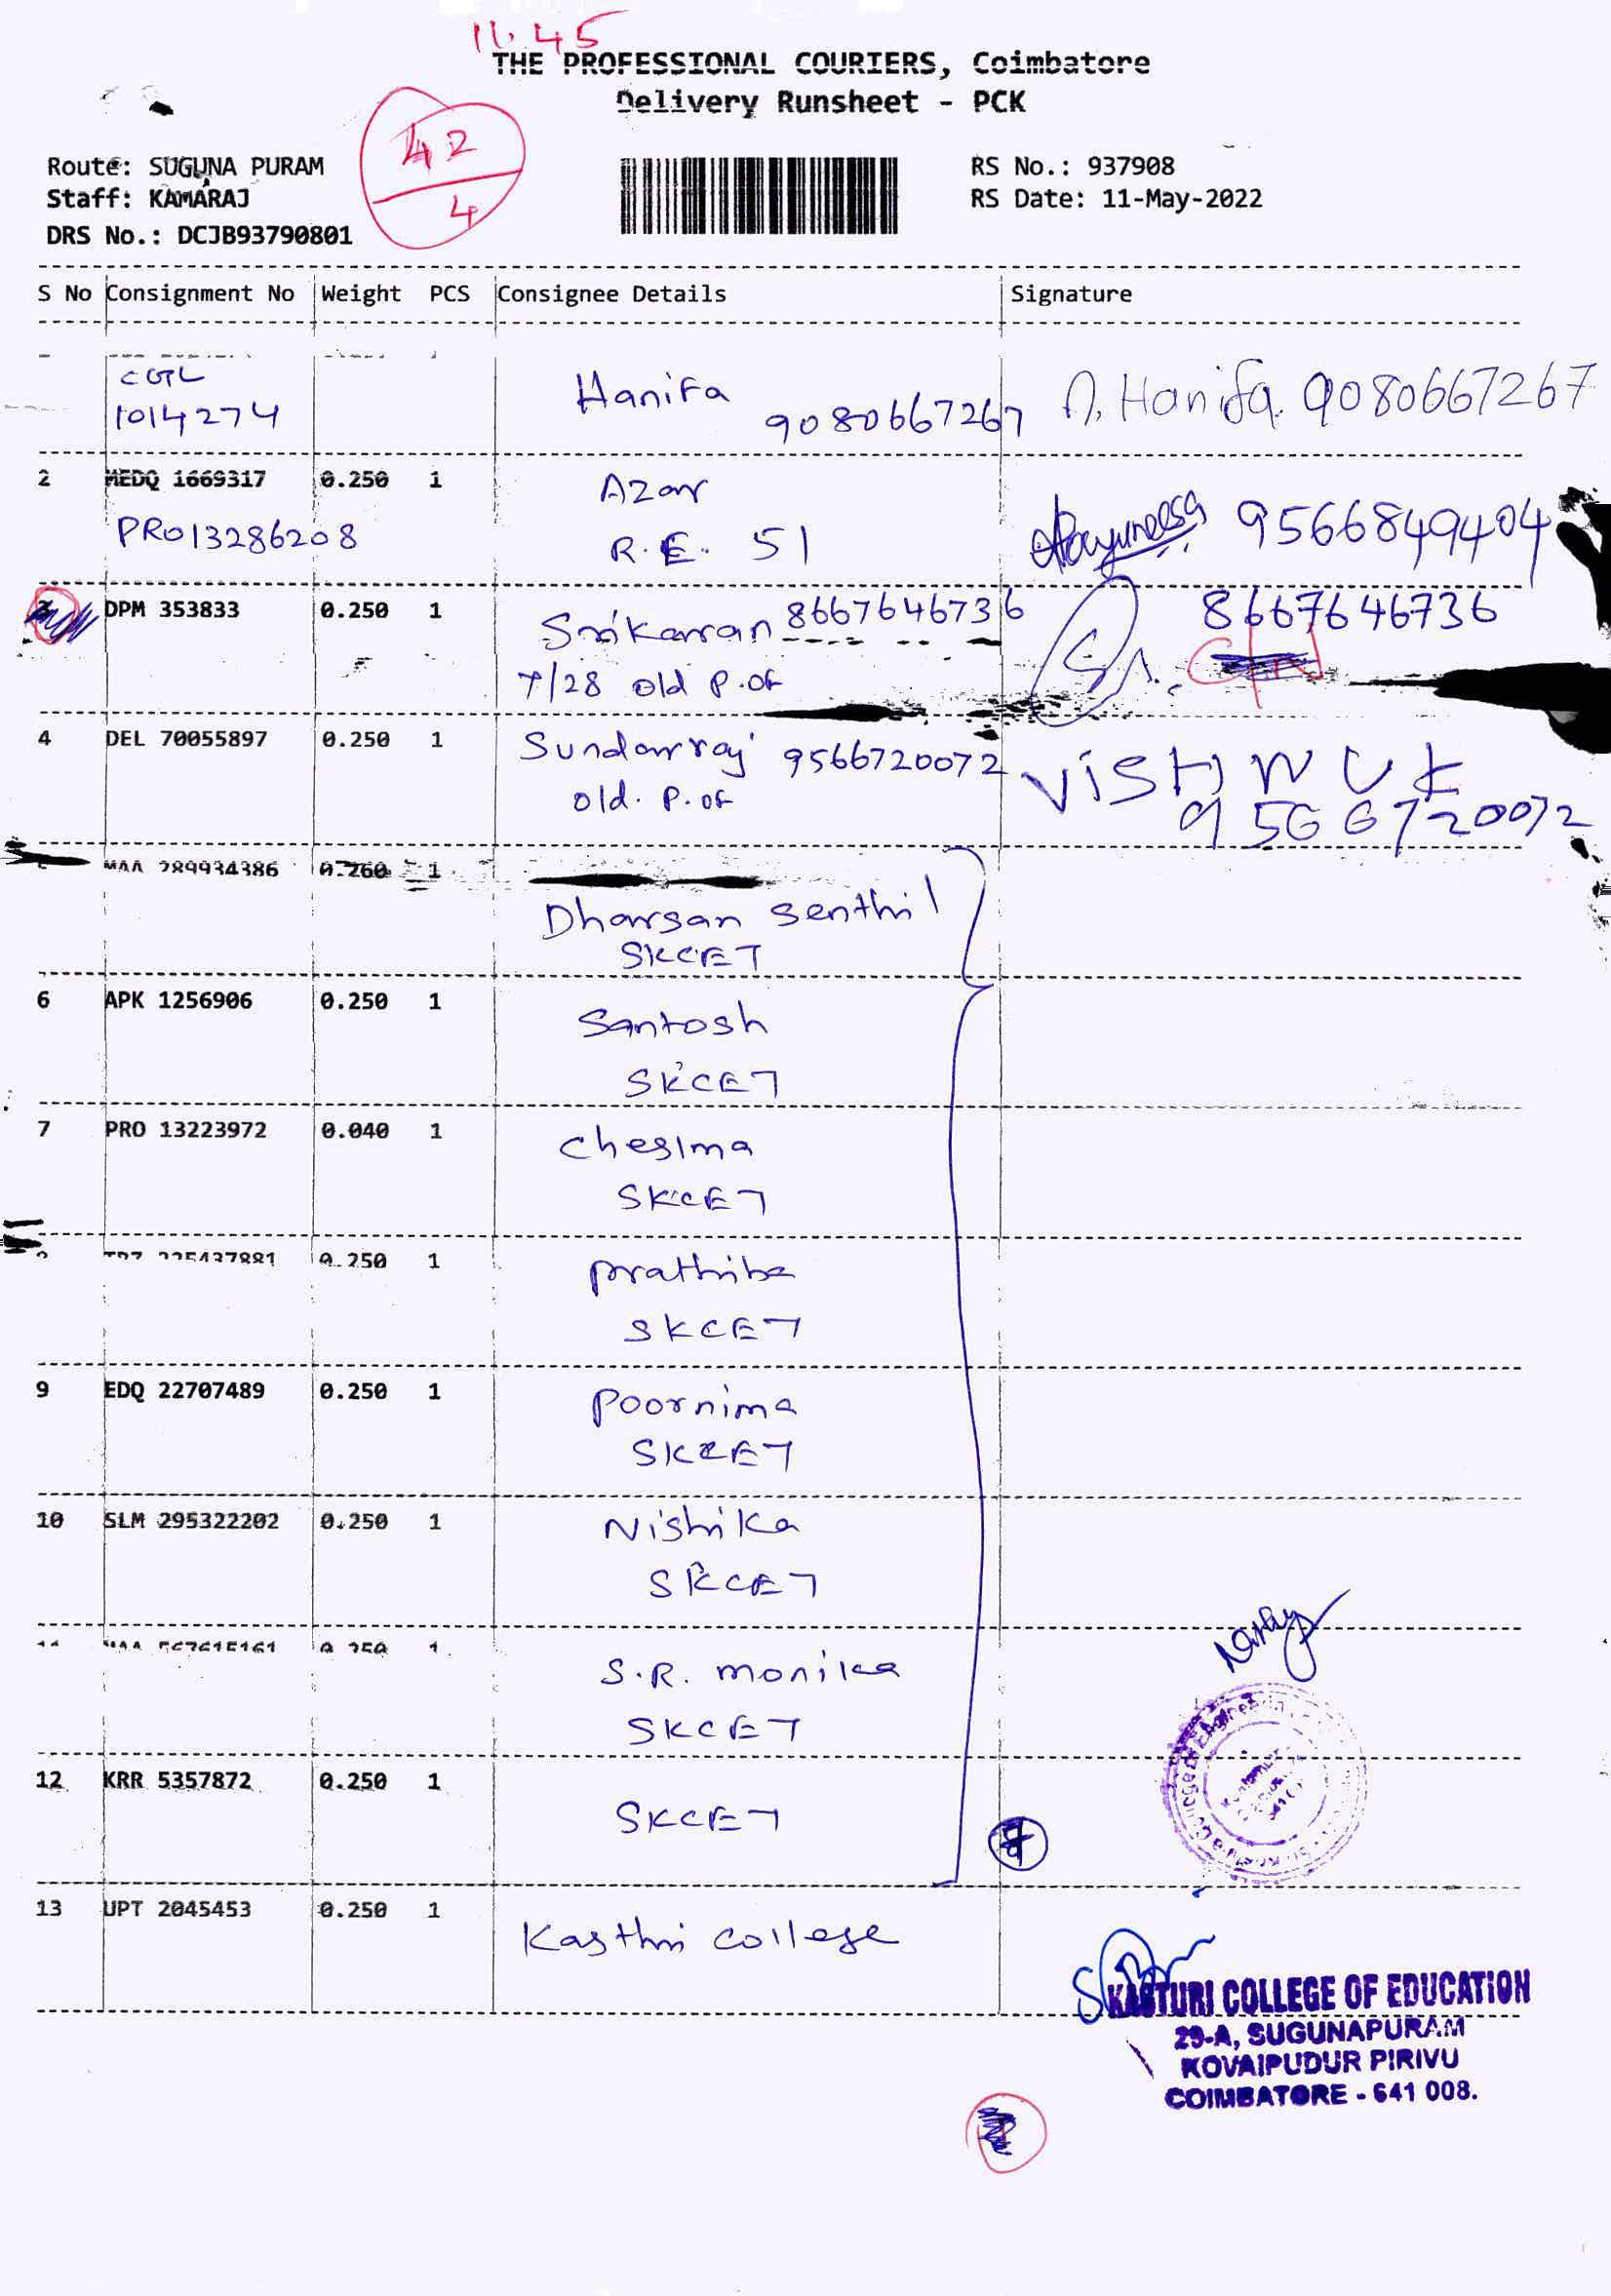 11.45
THE PROFESSIONAL COURIERS, Coimbatore
Delivery Runsheet - PCK
42
4
Route: SUGUNA PURAM
Staff: KAMARAJ
DRS No.: DCJB93790801
RS No.: 937908
RS Date: 11-May-2022
S No Consignment No Weight PCS Consignee Details Signature
CGTL Hanifa
1014274 9080667267 Hanifa 9080667267
2 MEDQ 1669317 0.250 1 Azar
PRO13286208 R.E. 51 9566849404
DPM 353833 0.250 1 Srikaran 8667646736 8667646736
7/28 old P.of
4 DEL 70055897 0.250 1 Sundarraj 9566720072
old. P.of 9566720072
MAA 289934386 0.760 1
Dharsan Senthil
SKCET
6 APK 1256906 0.250 1 Santosh
SKCET
7 PRO 13223972 0.040 1 Chesima
SKCET
0.250 1 Prathiba
SKCET
9 EDQ 22707489 0.250 1 Poornima
SKCET
10 SLM 295322202 0.250 1 Nishika
SKCET
S.R. monika
SKCET
12 KRR 5357872 0.250 1
SKCET
13 UPT 2045453 0.250 1
Kasthri College
KASTURI COLLEGE OF EDUCATION
29-A, SUGUNAPURAM
KOVAIPUDUR PIRIVU
COIMBATORE - 641 008.